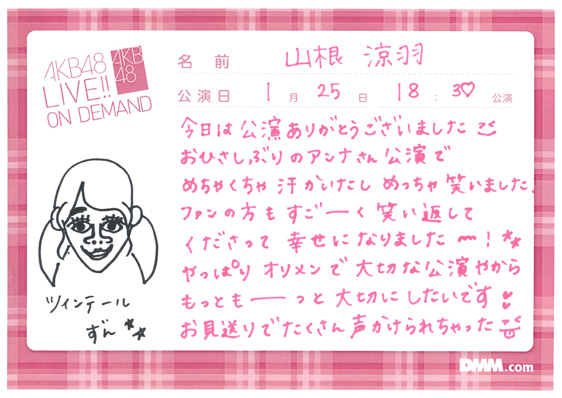 AKB48
LIVE!!
ON DEMAND
AKB
48
名前 山根 涼羽
公演日 1月 25日 18:30 公演
今日は公演ありがとうございました
おひさしぶりのアンナさん公演で
めちゃくちゃ汗かいたし めっちゃ笑いました、
ファンの方もすごーーく笑い返して
くださって 幸せになりました ー!
やっぱり オリメンで 大切な公演やから
もっとも——っと 大切にしたいです
お見送りでたくさん声かけられちゃった
ツインテール
ずん
DMM.com